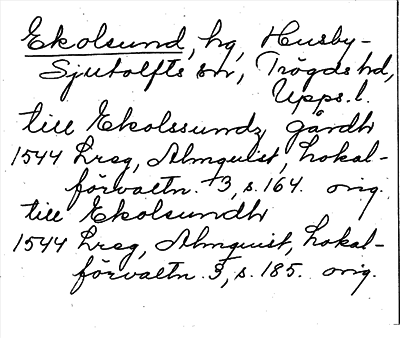 Ekolsund, hg, Husby-
Sjutolfts sn, Trögds hd,
Upps. l.
till Ekolssundz gårdh
1544 Lreg, Almquist, Lokal-
förvaltn. 3, s. 164. orig.
till Ekolsundh
1544 Lreg, Almquist, Lokal-
förvaltn. 3, s. 185. orig.